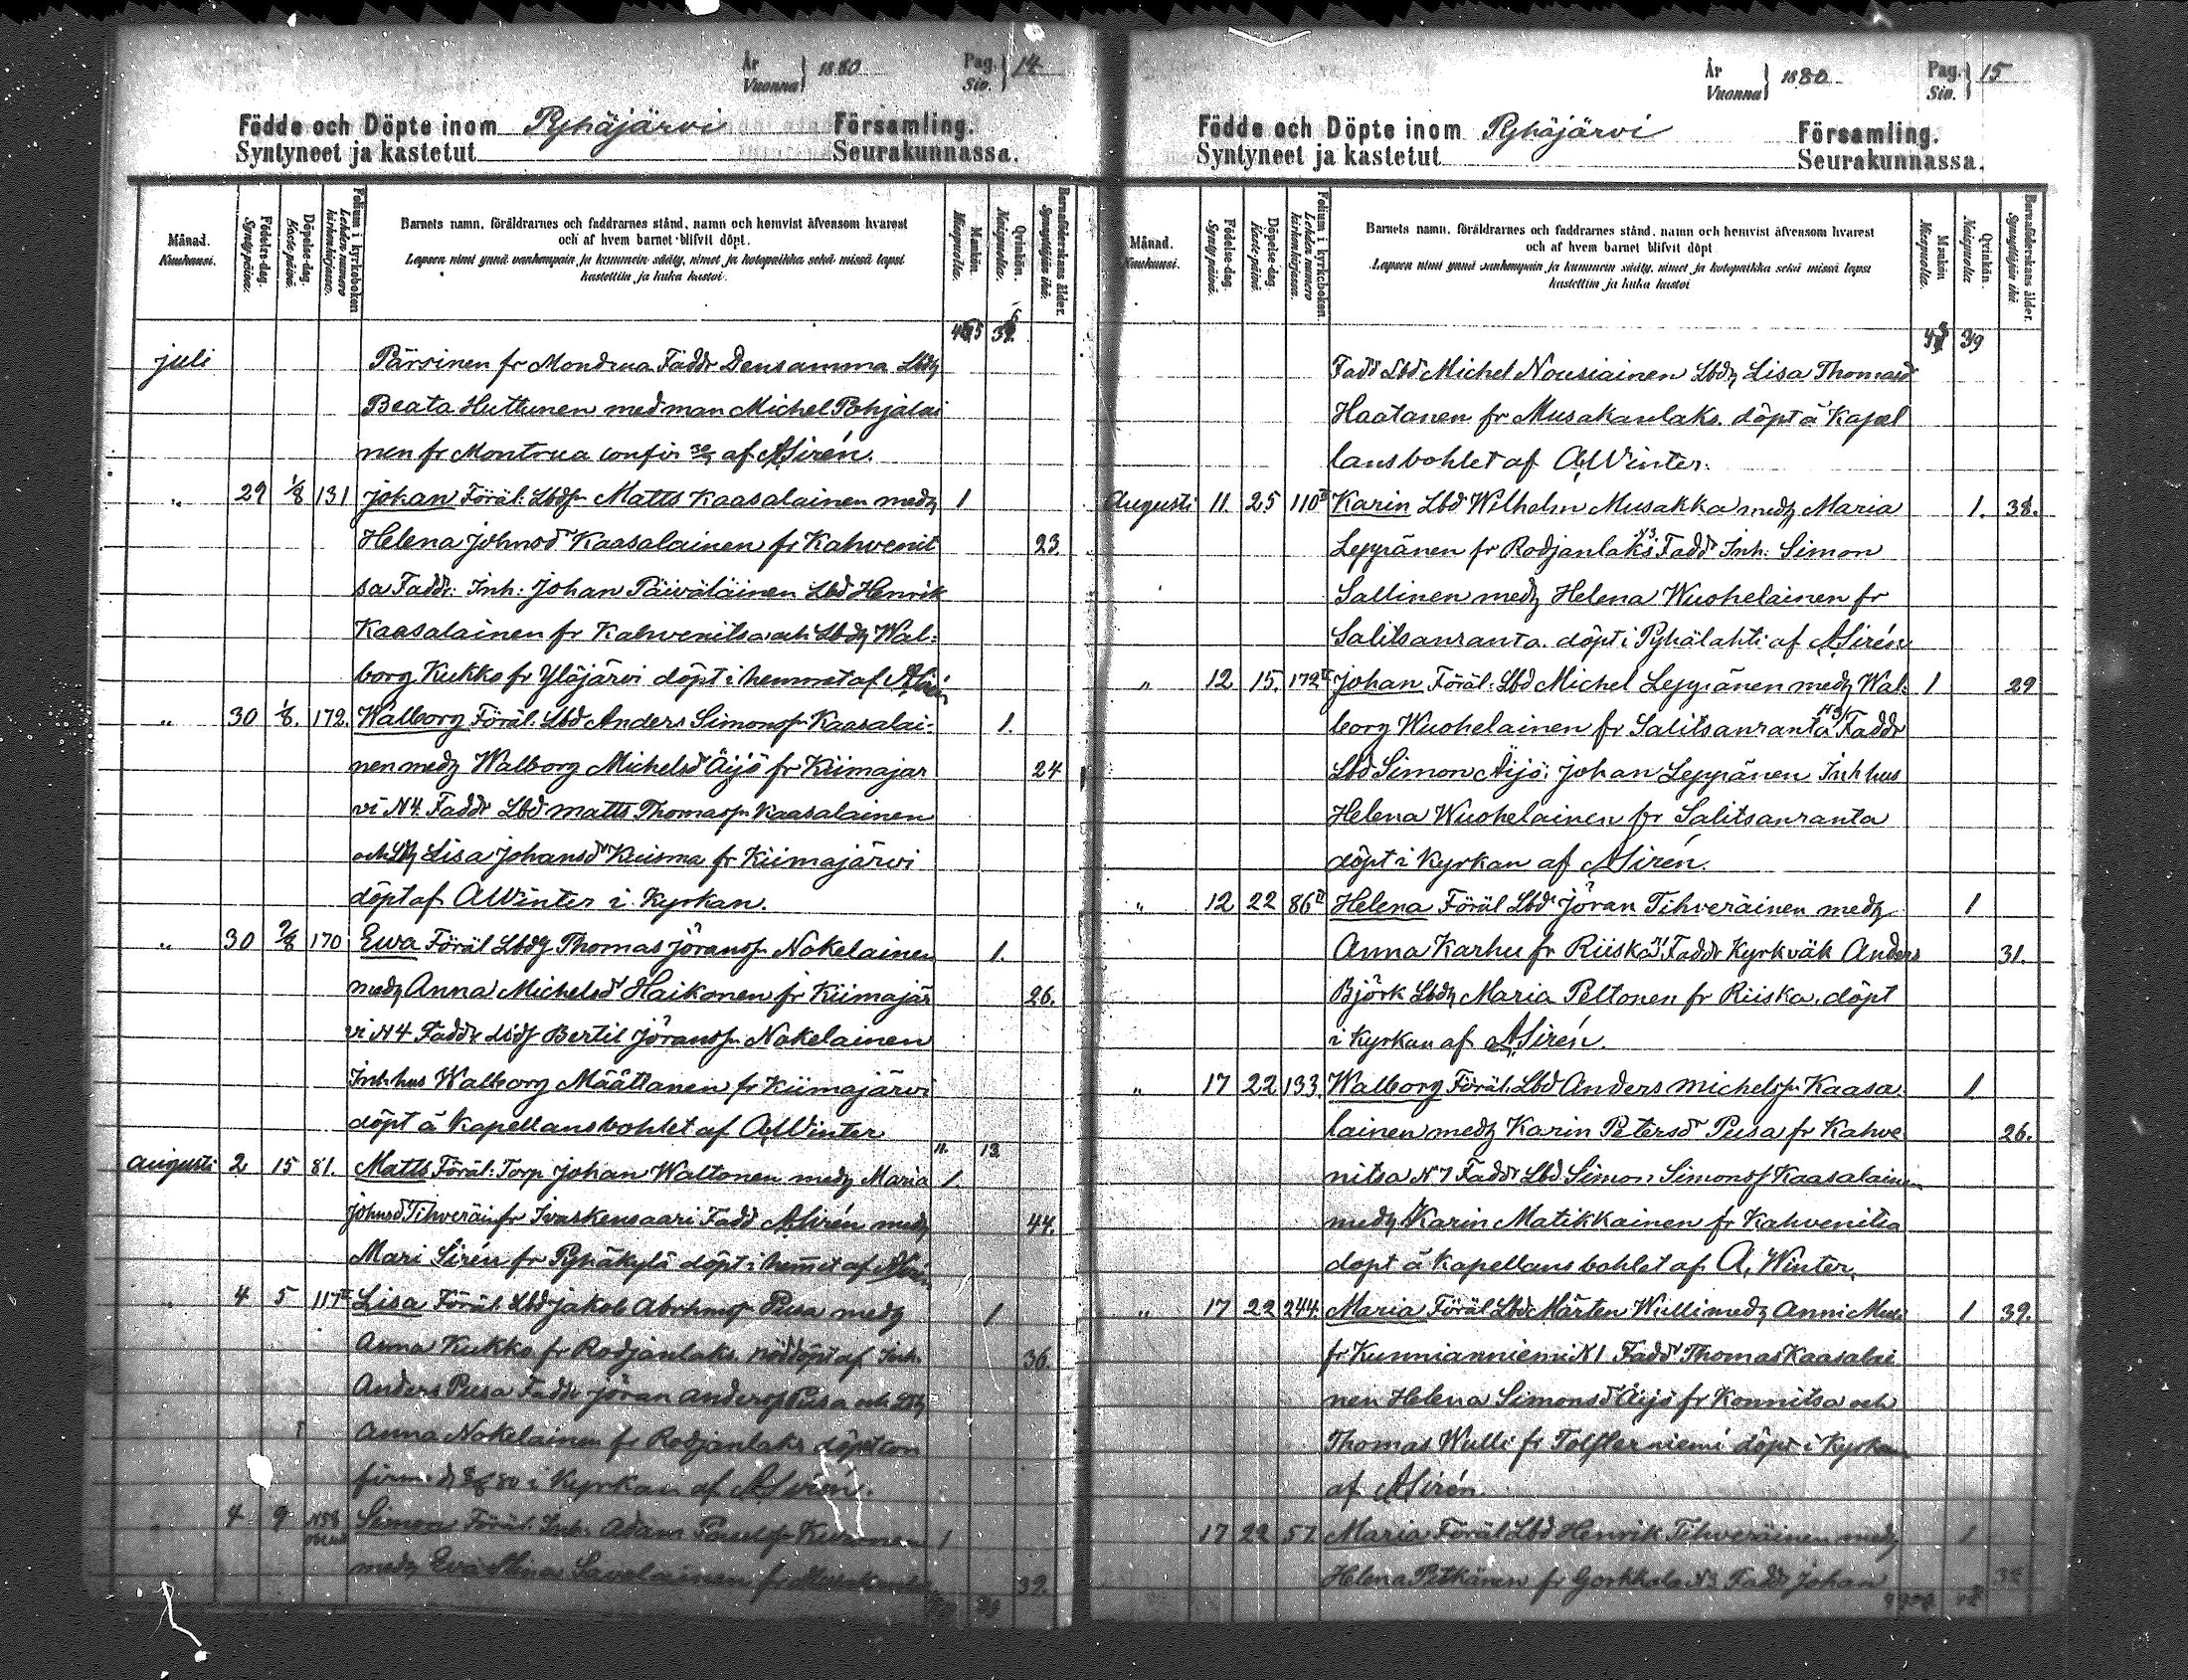 År Vuonna 1880 Pag. Siv. 14
Födde och Döpte inom Pyhäjärvi Församling.
Syntyneet ja kastetut Seurakunnassa.
Månad. Kuukausi.
Födelse-dag. Syntypäivä.
Döpelse-dag. Kastepäivä.
Folium i kyrkoboken Lehden numero kirkonkirjassa.
Barnets namn, föräldrarnes och faddrarnes stånd, namn och hemvist äfvensom hvarest
och af hvem barnet blifvit döpt.
Lapsen nimi ynnä vanhempain ja kummein sääty, nimet ja kotopaikka sekä missä lapsi
kastettiin ja kuka kastoi.
Mankön. Miespuolia.
Qvinkön. Naispuolia.
Barnaföderskans ålder. Synnyttäjän ikä.
juli Pärsinen fr Mondrua Faddr Densamma Lbdh
Beata Huttunen med man Michel Pohjalai
nen fr Montrua confir af ASirén.
" 29 1/8 131 Johan Föräl: Lbdsn Matts Kaasalainen medh 1
Helena Johnsd Kaasalainen fr Kahvenit 23
sa Faddr: Inh: Johan Päiväläinen Lbd Henrik
Kaasalainen fr Kahvenitsa och Lbdh Wal:
borg Kukko fr Yläjärvi döpt i hemmet af ASirén
" 30 1/8. 172. Walborg Föräl. Lbd Anders Simonssn Kaasalai: 1.
nen medh Walborg Michelsd Äijö fr Kiimajär 24
vi N4. Faddr Lbd Matts Thomassn Kaasalainen
och Lbh Lisa Johansdr Kuisma fr Kiimajärvi
döpt af AWinter i Kyrkan.
" 30 2/8 170 Ewa Föräl Lbdh Thomas Jöranssn Nokelainen 1.
medh Anna Michelsd Haikonen fr Kiimajär 26.
vi N4 Faddr Lbds Bertil Jöranssn Nokelainen
Inh hus Walborg Määttanen fr Kiimajärvi
döpt å Kapellansbohlet af AWinter
11. 13
Augusti 2 15 81. Matts Föräl: Torp Johan Waltonen medh Maria 1.
Johnsd Tihveräi fr Ivaskensaari Fadd ASirén medh 44.
Mari Sirén fr Pyhäkylä döpt i hemet af ASirén
" 4 5 117 II Lisa Föräl. Lbd Jakob Abrhmsn Pusa medh 1
Anna Kukko fr Rodjanlaks. nöddöpt af Inh. 36.
Anders Pusa Faddr Jöran Anderss Pusa och Lbh
Anna Nokelainen fr Rodjanlaks döpt con
firm. d 80 i Kyrkan af ASirén.
" 4 9 Simon Föräl. Inh. Adam 1
medh Eva Stina Savolainen fr 39.
År Vuonna 1880 Pag. Siv. 15
Födde och Döpte inom Pyhäjärvi Församling.
Syntyneet ja kastetut Seurakunnassa.
Månad. Kuukausi.
Födelse-dag. Syntypäivä.
Döpelse-dag. Kastepäivä.
Folium i kyrkoboken. Lehden numero kirkonkirjassa.
Barnets namn, föräldrarnes och faddrarnes stånd, namn och hemvist äfvensom hvarest
och af hvem barnet blifvit döpt
Lapsen nimi ynnä vanhempain ja kummein sääty, nimet ja kotopaikka sekä missä lapsi
kastettiin ja kuka kastoi
Mankön Miespuolia.
Qvinkön. Naispuolia
Barnaföderskans ålder. Synnyttäjän ikä.
39
Fadd Lbd Michel Nousiainen Lbdh Lisa Thomasd
Haatanen fr Musakanlaks. döpt å Kapel
lansbohlet af AWinter.
Augusti 11. 25 110 II Karin Lbd Wilhelm Musakka medh Maria 1. 38.
Leppänen fr Rodjanlaks N3. Faddr Inh. Simon
Sallinen medh Helena Wuohelainen fr
Salitsanranta. döpt i Pyhälahti af ASirén
" 12 15. 172 II Johan Föräl: Lbd Michel Leppänen medh Wal: 1 29
borg Wuohelainen fr Salitsanranta N3 Faddr
Lbd Simon Äijö: Johan Leppänen Inh hus
Helena Wuohelainen fr Salitsanranta
döpt i Kyrkan af ASirén.
" 12 22 86 II Helena Föräl Lbd Jöran Tihveräinen medh 1
Anna Karhu fr Riiska N1 Faddr Kyrkväk Anders 31.
Björk Lbdh Maria Peltonen fr Riiska. döpt
i Kyrkan af ASirén.
" 17 22 133. Walborg Föräl. Lbd Anders Michelssn Kaasa 1
lainen medh Karin Petersd Pusa fr Kahve 26.
nitsa N7 Faddr Lbd Simon Simonss Kaasalainen
medh Karin Matikkainen fr Kahvenitsa
döpt å Kapellansbohlet af A, Winter.
" 17 22 244. Maria Föräl Lbd Mårten Wulli medh Anni 1 39.
fr Kunnianniemi N1 Faddr Thomas Kaasalai
nen Helena Simonsd Äijö fr Konnitsa och
Thomas Wulli fr döpt i Kyrkan
af ASirén
17 22 57. Maria Föräl Lbd Henrik Tihveräinen medh 1
Helena Pitkänen fr Gorkkala N3 Faddr Johan